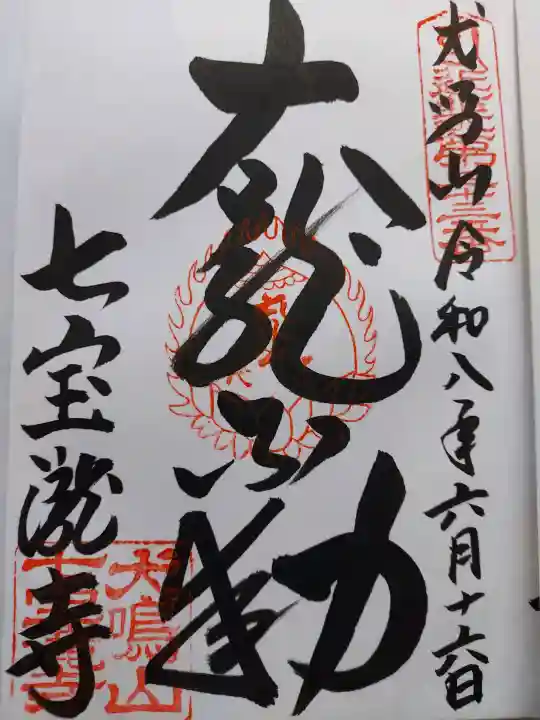 犬鳴山 令和八年六月十六日
大龍不動
七宝瀧寺
犬鳴山
七宝瀧寺